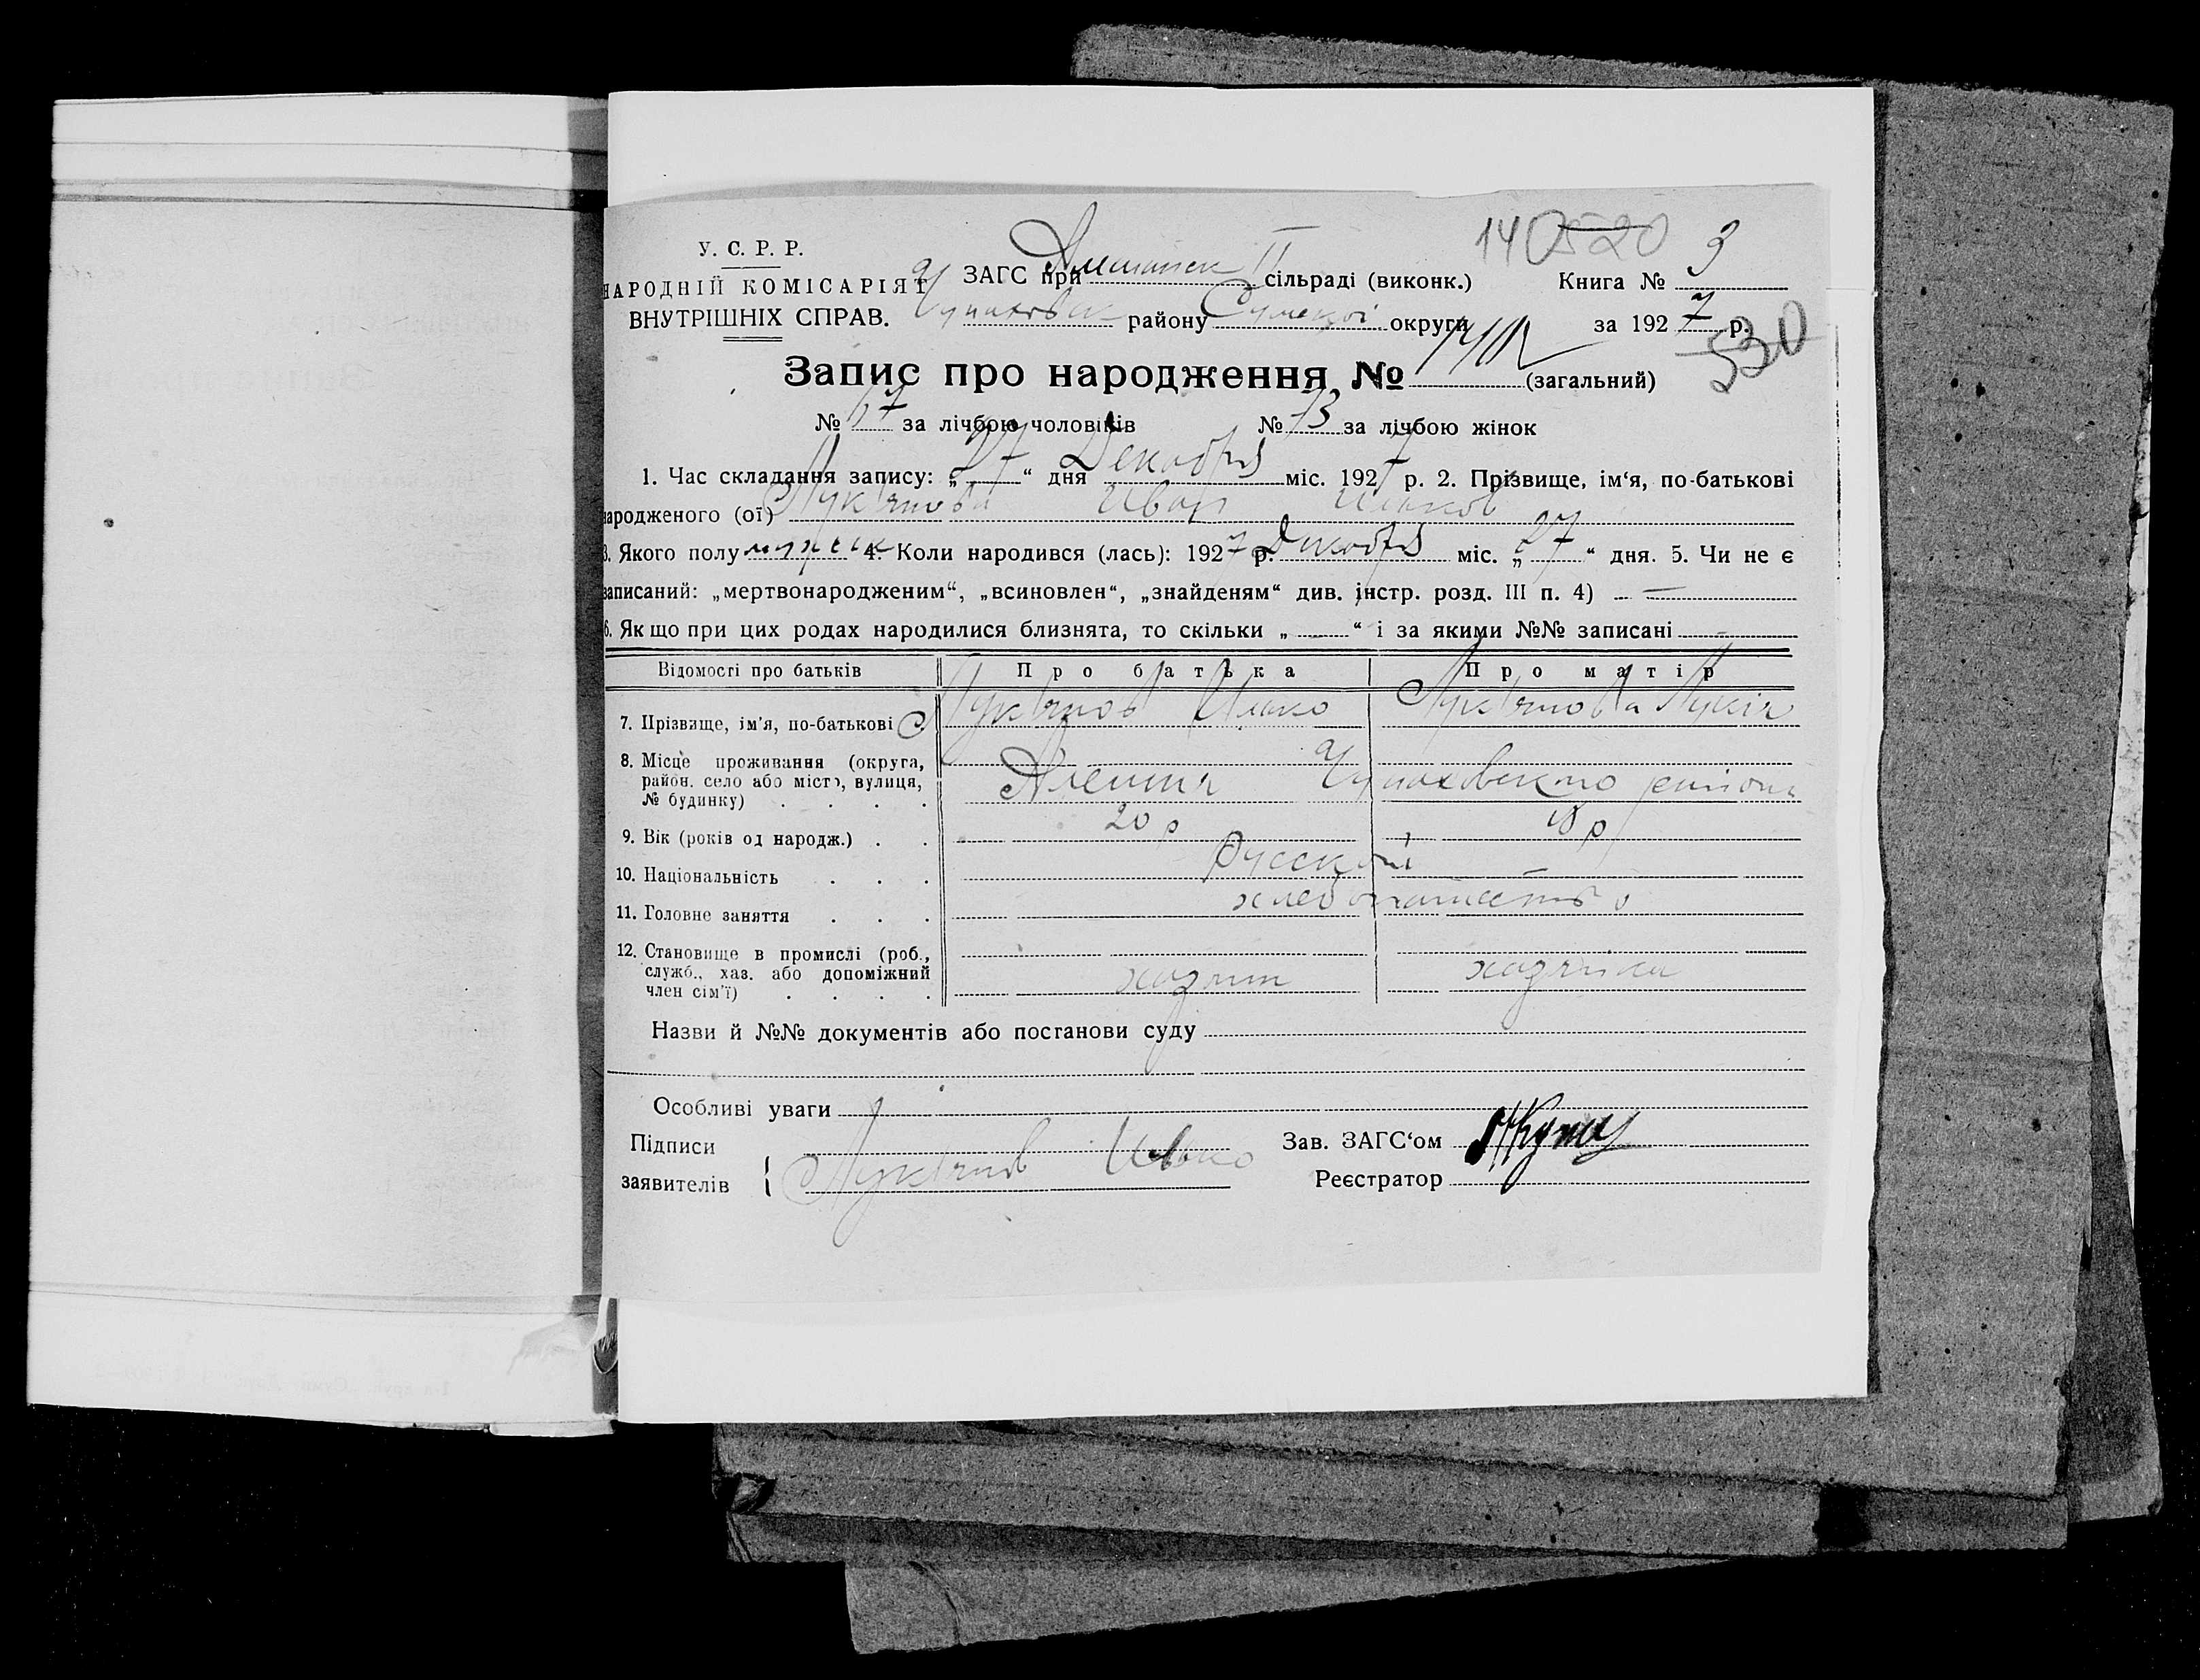 У. С. Р. Р.
НАРОДНІЙ КОМІСАРІЯТ
ВНУТРІШНІХ СПРАВ.
ЗАГС при Алешанск II сільраді (виконк.)
Чупаховск району Сумской округи
520
Книга № 3
за 1927 р.
530
Запис про народження № (загальний)
№ 67 за лічбою чоловіків № 73 за лічбою жінок
1. Час складання запису: „27“ дня Декабря міс. 1927 р. 2. Прізвище, ім‘я, по-батькові
народженого (ої) Лукьянова Иван
3. Якого полу мужск 4. Коли народився (лась): 1927 р. Декабря міс. „27“ дня. 5. Чи не є
записаний: „мертвонародженим“, „всиновлен“, „знайденям“ див. інстр. розд. III п. 4) —
6. Якщо при цих родах народилися близнята, то скільки „ “ і за якими №№ записані
Відомості про батьків Про батька Про матір
7. Прізвище, ім‘я, по-батькові Лукьянов Илько Лукьянова Лукія
8. Місце проживання (округа, район, село або місто, вулиця, № будинку) Алешня Чупаховского района
9. Вік (років од народж.) 20 р 18 р
10. Національність Русские
11. Головне заняття хлебопашество
12. Становище в промислі (роб., служб., хаз. або допоміжний член сім‘ї) хазяин хазяйка
Назви й №№ документів або постанови суду
Особливі уваги
Підписи
заявителів Лукьянов
Зав. ЗАГС‘ом
Реєстратор